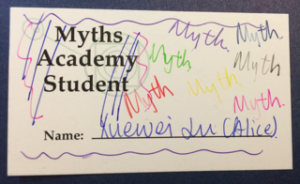 Myths
Academy
Student
Myth.
Myth.
Myth
Myth
Myth
Myth
Myth.
Name: Xuewei Lu (Alice)